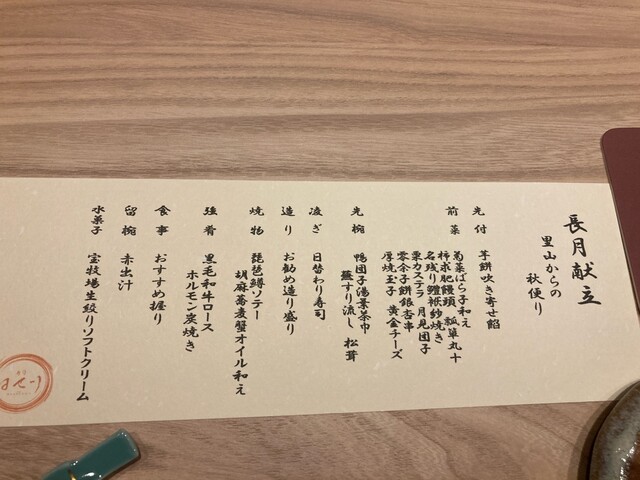 長月献立
里山からの
秋便り
先付
芋餅吹き寄せ餡
前菜
菊菜ばら子和え
柿求肥饅頭 瓢箪丸十
名残り鱧祇紗焼き
栗カステラ 月見団子
零余子餅銀杏串
厚焼玉子 黄金チーズ
先椀
鴨団子湯葉茶巾
蕪すり流し 松茸
凌ぎ
日替わり寿司
造り
お勧め造り盛り
焼物
琵琶鱒ソテー
胡麻蕎麦蟹オイル和え
強肴
黒毛和牛ロース
ホルモン炭焼き
食事
おすすめ握り
留椀
赤出汁
水菓子
宝牧場生絞りソフトクリーム